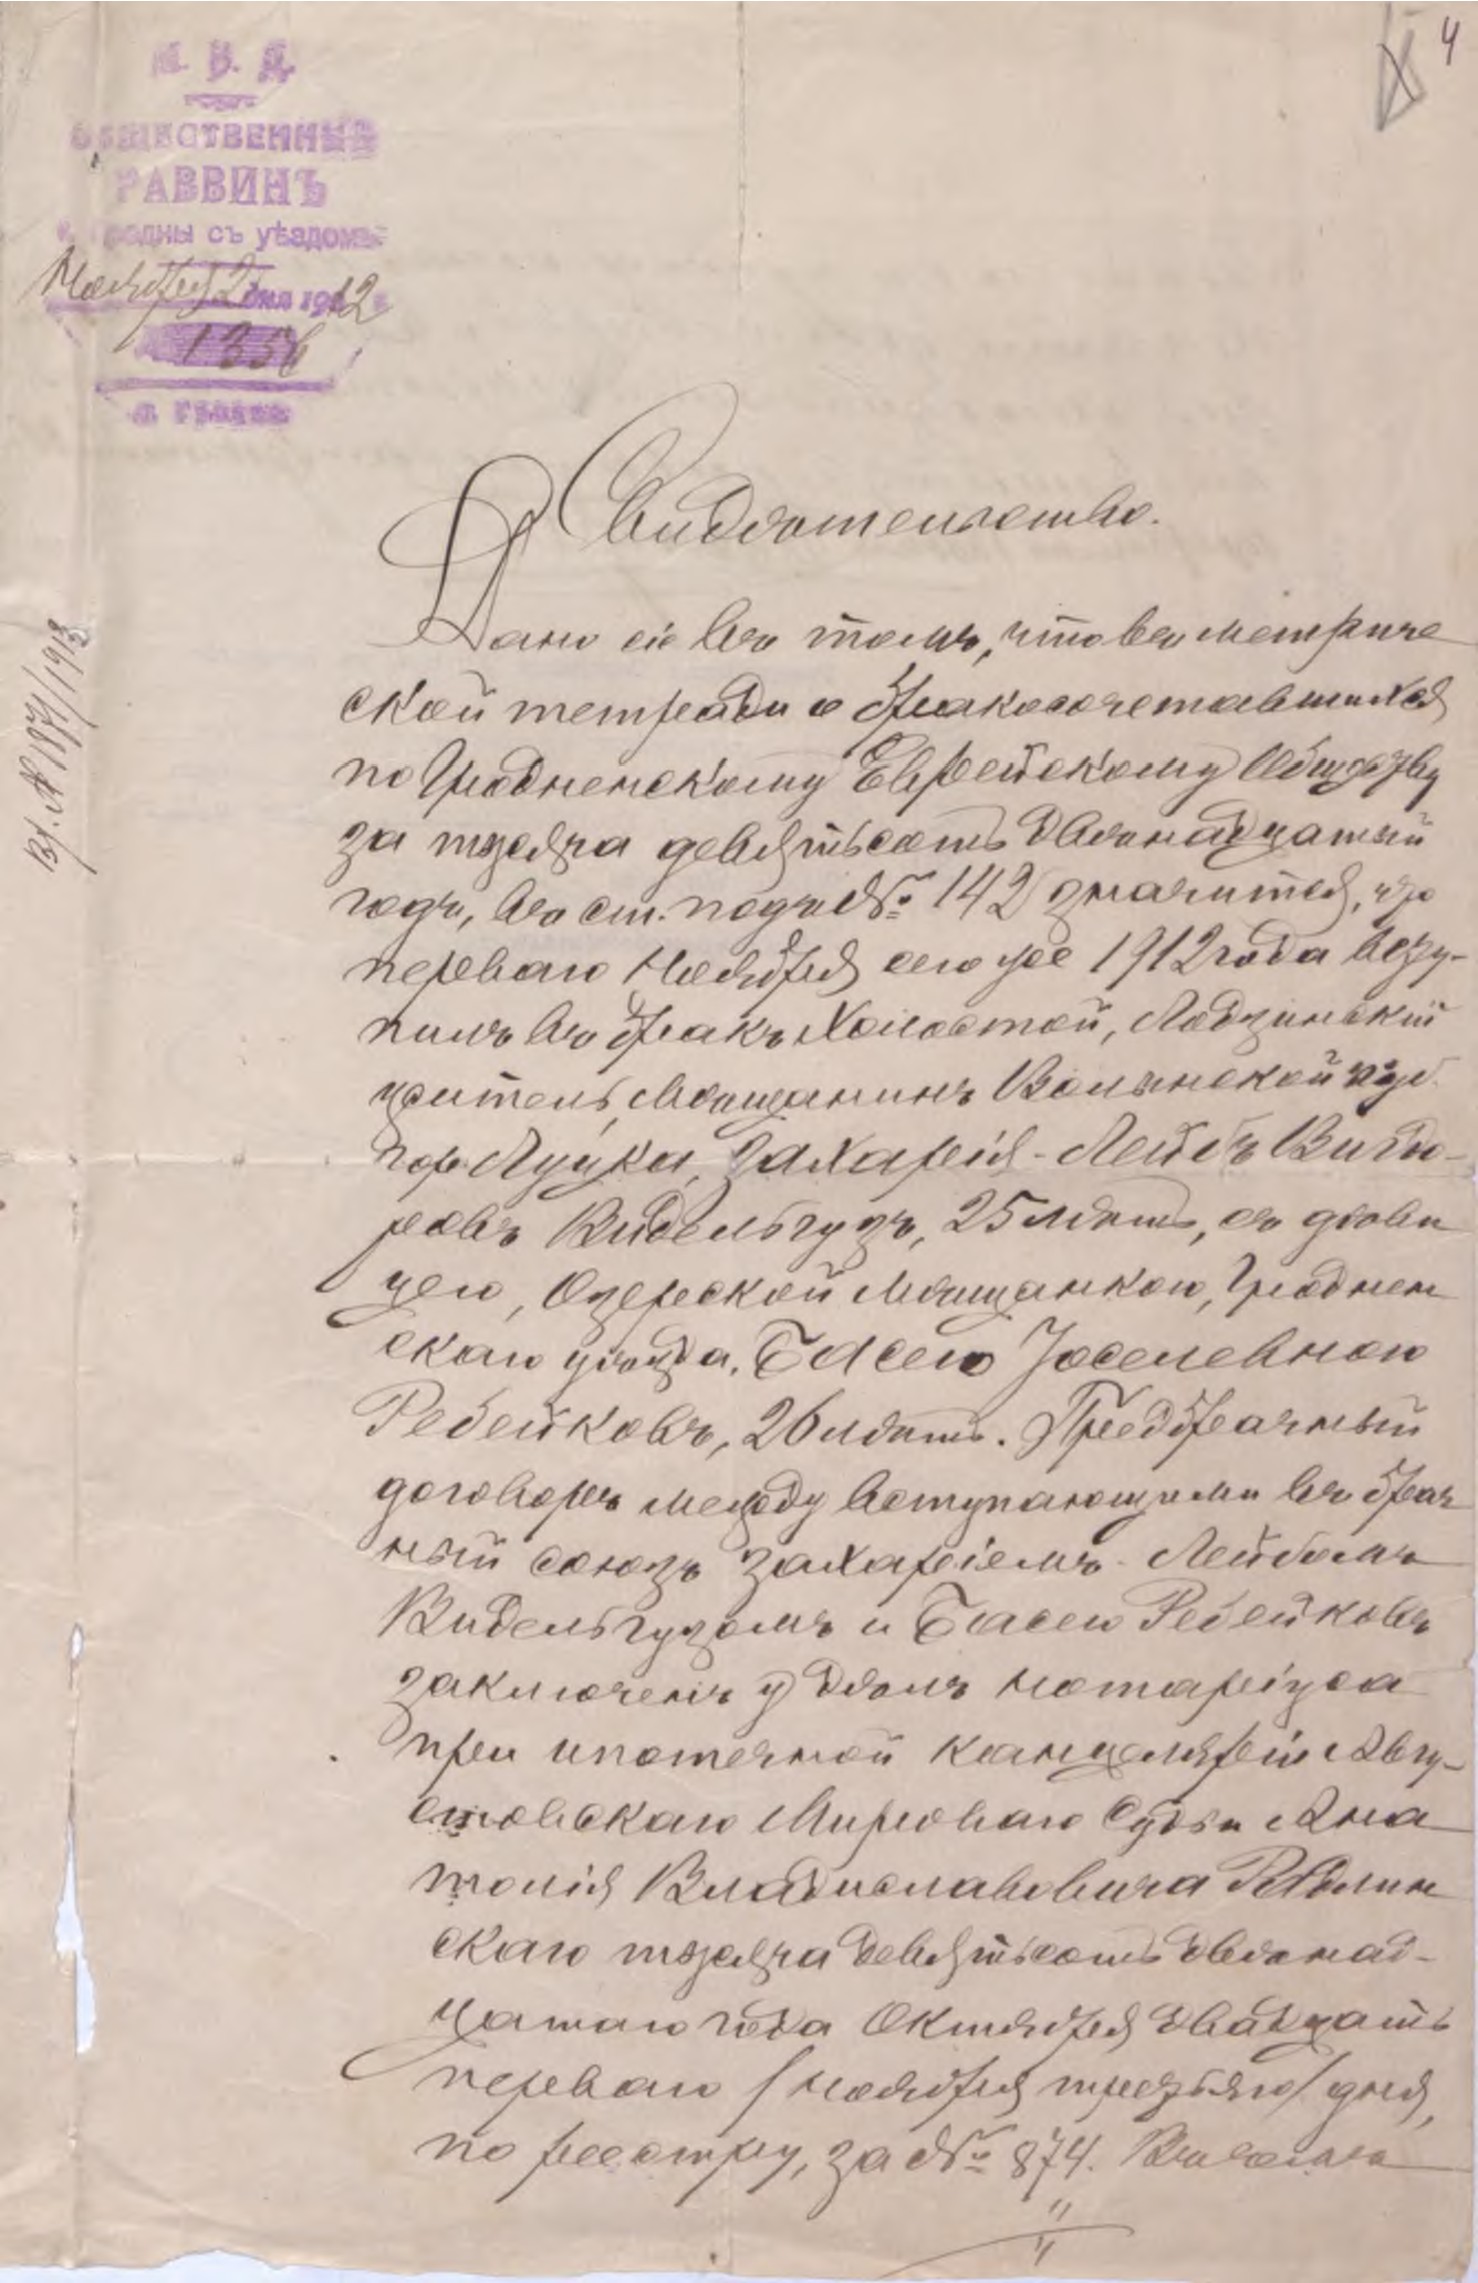 4
М. В. Д.
ОБЩЕСТВЕННЫЙ
РАВВИНЪ
г. Гродны съ уѣздомъ
Ноября 2 дня 1912 г.
1356
г. Гродна
Вх. № 1874/1913
Свидѣтельство.
Дано сіе въ томъ, что въ метриче
ской тетради о бракосочетавшихся
по Гродненскому Еврейскому Обществу
за тысяча девятьсотъ двѣнадцатый
годъ, въ ст. подъ № 142 значится, что
перваго Ноября сего же 1912 года всту-
пилъ въ бракъ холостой, Лодзинскій
житель, мѣщанинъ Волынской губ.
гор. Луцка, Захарія-Лейбъ Видо-
ровъ Видельгузъ, 25 лѣтъ, съ дѣви
цею, Озерской мѣщанкою, Гроднен
скаго уѣзда, Басею Іоселевною
Ребейковъ, 26 лѣтъ. Предбрачный
договоръ между вступающими въ брач
ный союзъ Захаріемъ-Лейбомъ
Видельгузомъ и Басею Ребейковъ
заключенъ у Дѣлъ нотаріуса
при ипотечной канцеляріи Авгу-
стовскаго Мирового Судьи Ана
толія Владиславовича
скаго тысяча девятьсотъ двѣнад-
цатаго года Октября двадцать
перваго /ноября третьяго/ дня,
по реестру, за № 874. Въ чемъ